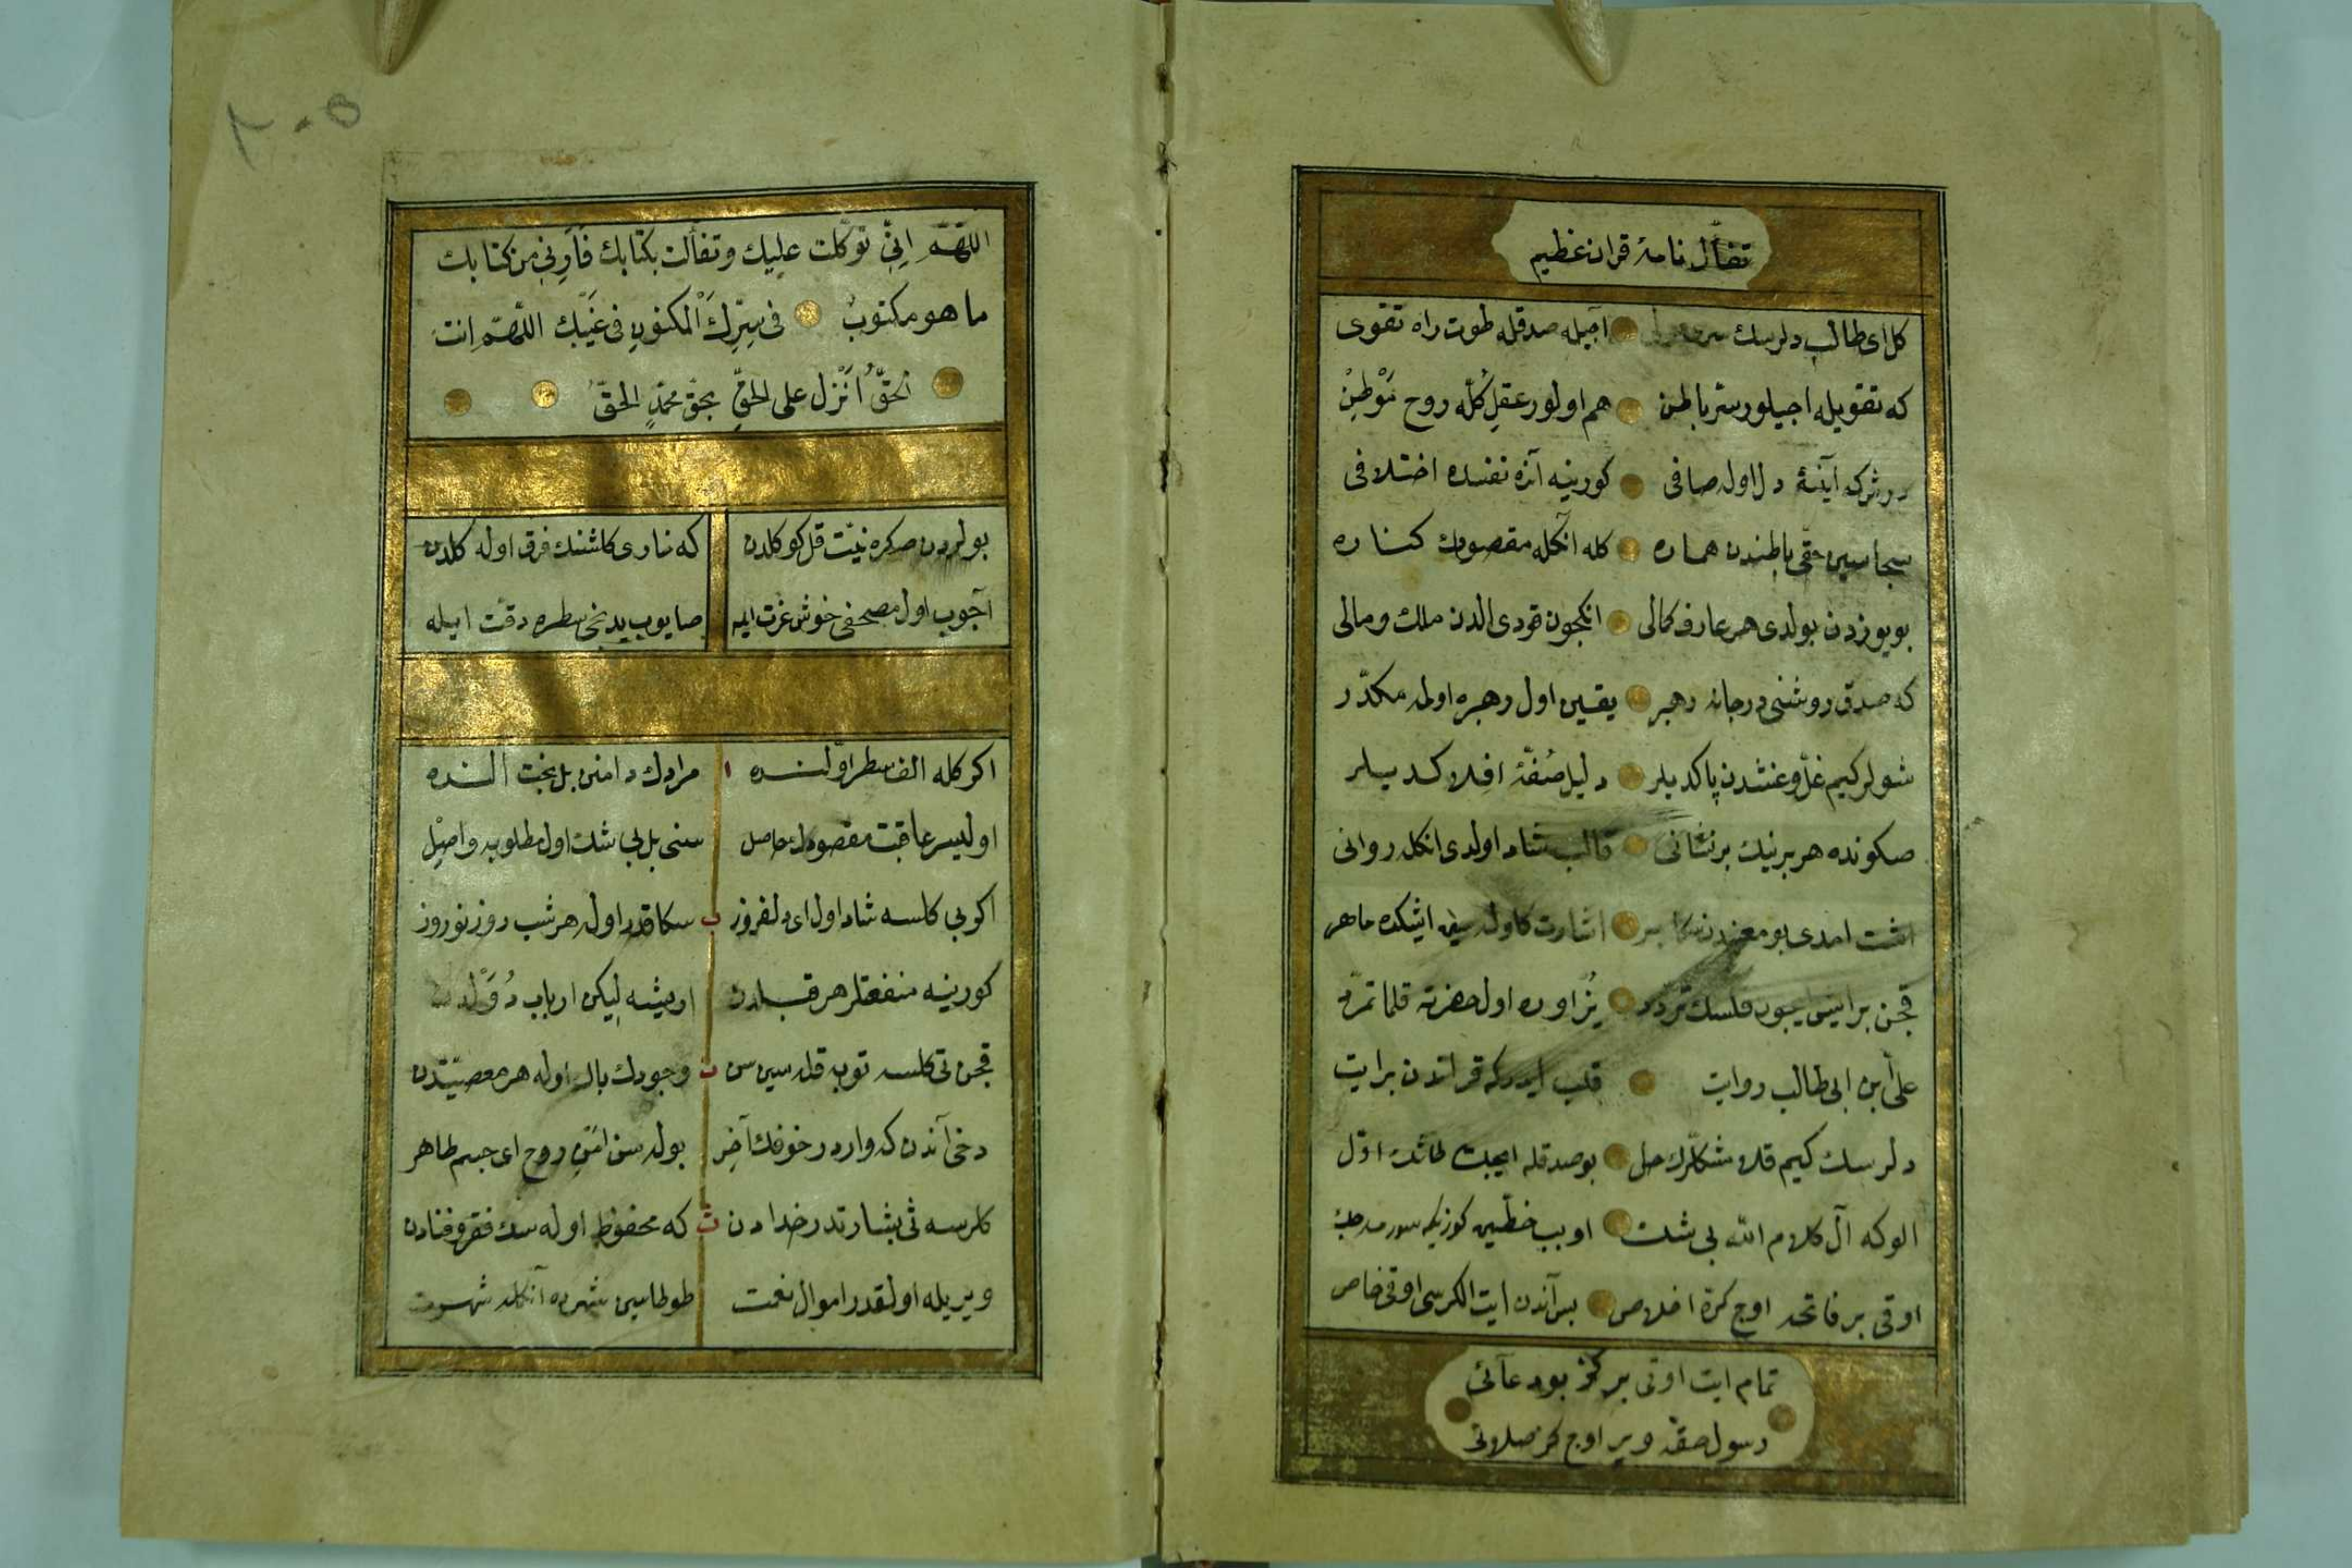 تفأل نامۀ قران عظیم
كل ای طالب دلرسك اچیله صدقله طوت راه تقوی
كه تقویله اچیلور سر باطن هم اولور عقل كله روح موطن
درشركه آینۀ دل اوله صافی كورینه آنده نفسده اختلافی
كله آنكله مقصودك كناره
بو یوزدن بولدی هر عارف كمالی انكچون قودی الدن ملك و مالی
كه صدق روشنی در جانه رهبر یقین اول رهبره اولمه مكدّر
شولر كیم غلّ و غشدن پاكدیلر دلیل صفّۀ افلاكدیلر
صكونده هر برینك بر نشانی قالب شاد اولدی انكله روانی
اشت امدی بو معنیدن اشارت ایشكده ماهر
قچن بر ایش ایچون قلسك تردد یز اوره اول حضرته قلما تمرّد
علی ابن ابی طالب روایت قلب ایدركه قراندن بر ایت
دلرسك كیم قلا مشكلرك حل بو صدقله ایچك طاشك اوّل
الوكه آل كلام الله بی شك اوپب خطّین كوزیكه
اوقی بر فاتحه اوج كرّة اخلاص بس آندن ایت الكرسی اوقی خاص
تمام ایت اوقی بر كز بو دعائی
رسول حقه ویر اوج كز صلاتی
٢٠٥
اللهمّ انّی توكّلت علیك وتفألت بكتابك فأرنی من كتابك
ما هو مكتوب فی سرّك المكنون فی غیبك اللهمّ انت
الحقّ انزل علی الحقّ بحقّ محمّد الحقّ
بولردن صكره نیّت قل كوكلدن كه ناری كلشنك فرق اوله كلدن
آچوب اول مصحفی خوش عزت ایله صایوب یدنجی سطره دقّت ایله
اكر كله الف سطر اوّلنده ١ مرادك دامنی بل بخت النده
اولیسر عاقبت مقصودك حاصل سنی بل بی شك اول مطلوبه واصل
اكر بی كلسه شاد اول ای دلفروز ب سكا قدر اوله هر شب روز نوروز
كورینه منفعتلر هر قبلدن اویشه لیكن ارباب دولدن
قچن تی كلسه توبه قله سین سن ت وجودك پاك اوله هر معصیتدن
دخی آندن كه واردر خوفك آخر بوله سن امن روح ای جسم طاهر
كلرسه ثی بشارتدر خدادن ث كه محفوظ اوله سك فقر و فنادن
ویریله اولقدر اموال نعمت طوطاسین شهرده آنكله شهرت